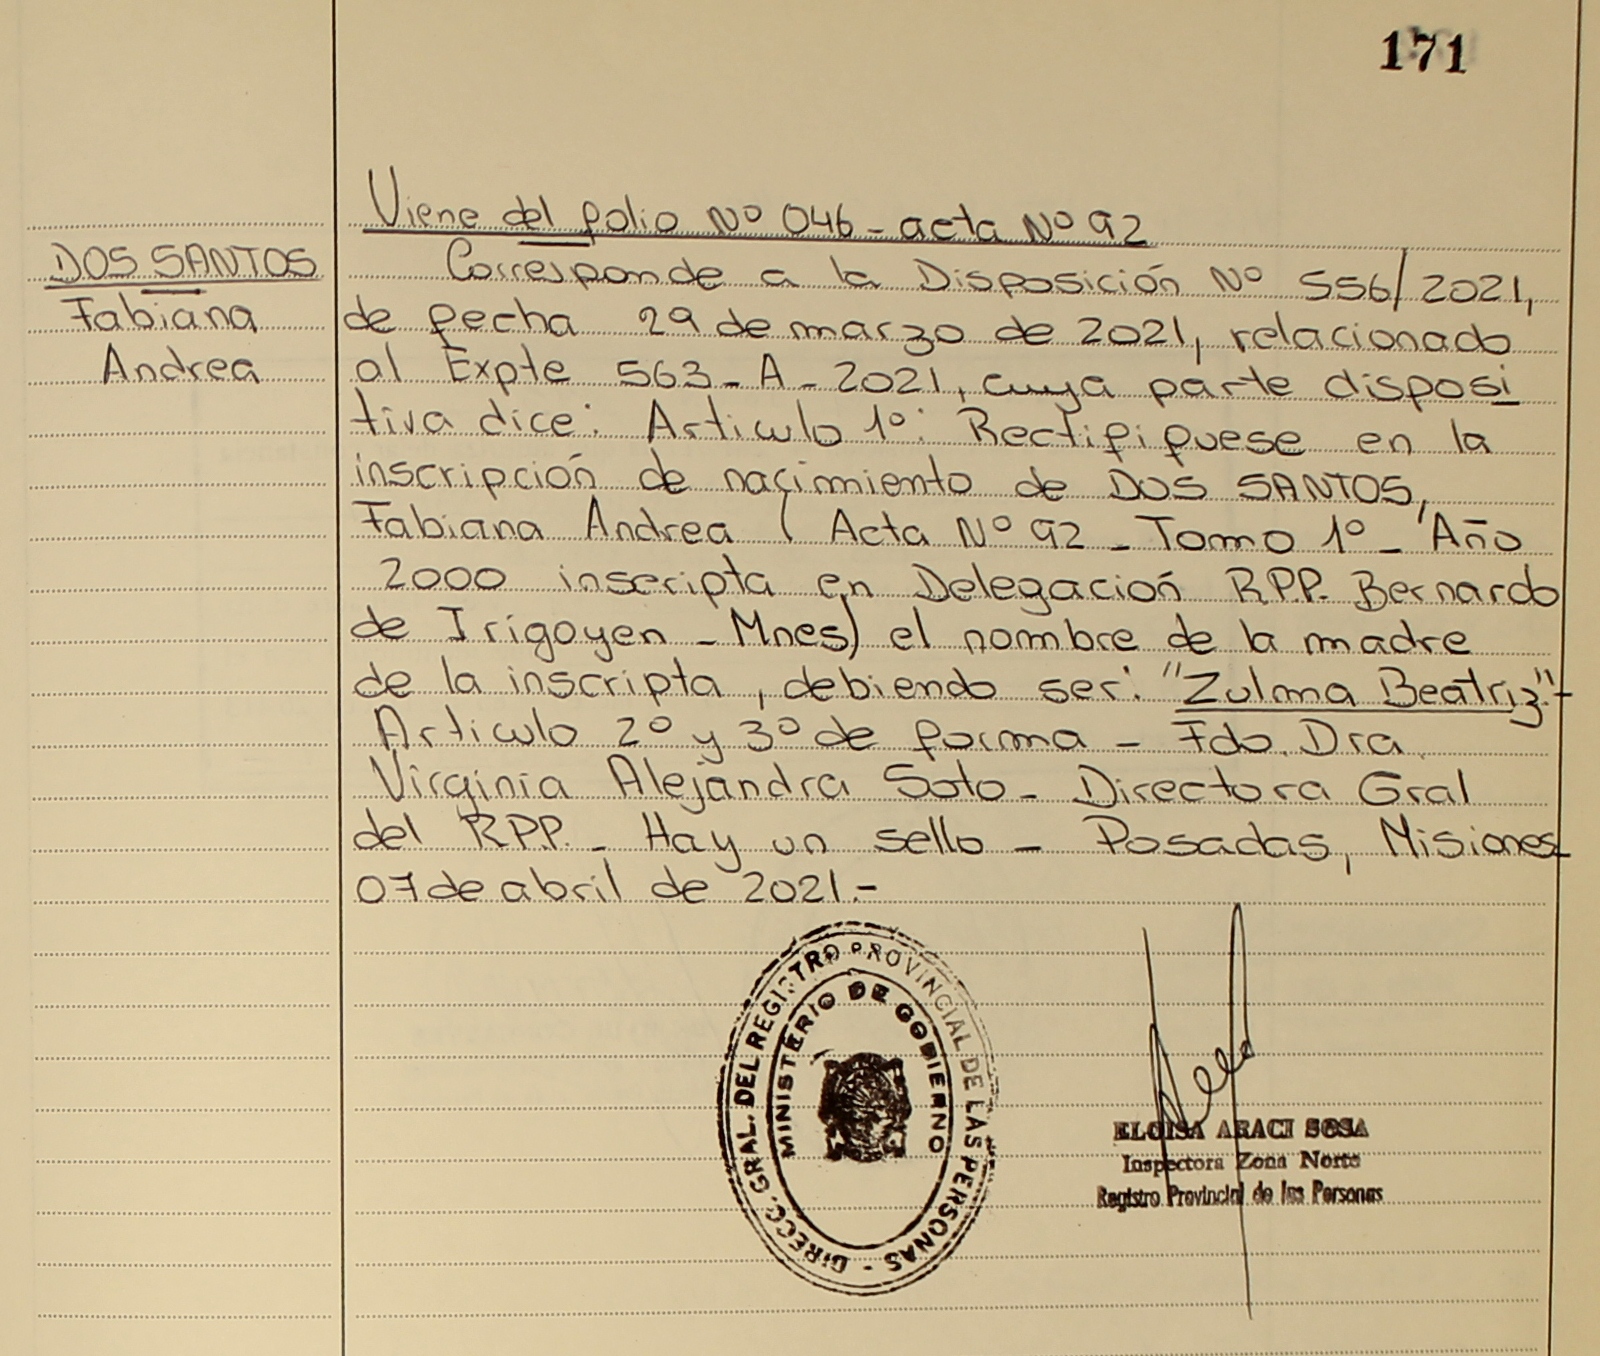 171
Viene del folio Nº 046 - acta Nº 92
DOS SANTOS
Fabiana
Andrea
Corresponde a la Disposición Nº 556/2021,
de fecha 29 de marzo de 2021, relacionado
al Expte 563 - A - 2021, cuya parte disposi
tiva dice: Articulo 1º: Rectifiquese en la
inscripción de nacimiento de DOS SANTOS,
Fabiana Andrea ( Acta Nº 92 - Tomo 1º - Año
2000 inscripta en Delegación R.P.P. Bernardo
de Irigoyen - Mnes) el nombre de la madre
de la inscripta, debiendo ser: "Zulma Beatriz".-
Articulo 2º y 3º de forma - Fdo. Dra.
Virginia Alejandra Soto - Directora Gral
del R.P.P. - Hay un sello - Posadas, Misiones
07 de abril de 2021.-
DIRECC. GRAL. DEL REGISTRO PROVINCIAL DE LAS PERSONAS -
MINISTERIO DE GOBIERNO
ELOISA ARACI SOSA
Inspectora Zona Norte
Registro Provincial de las Personas